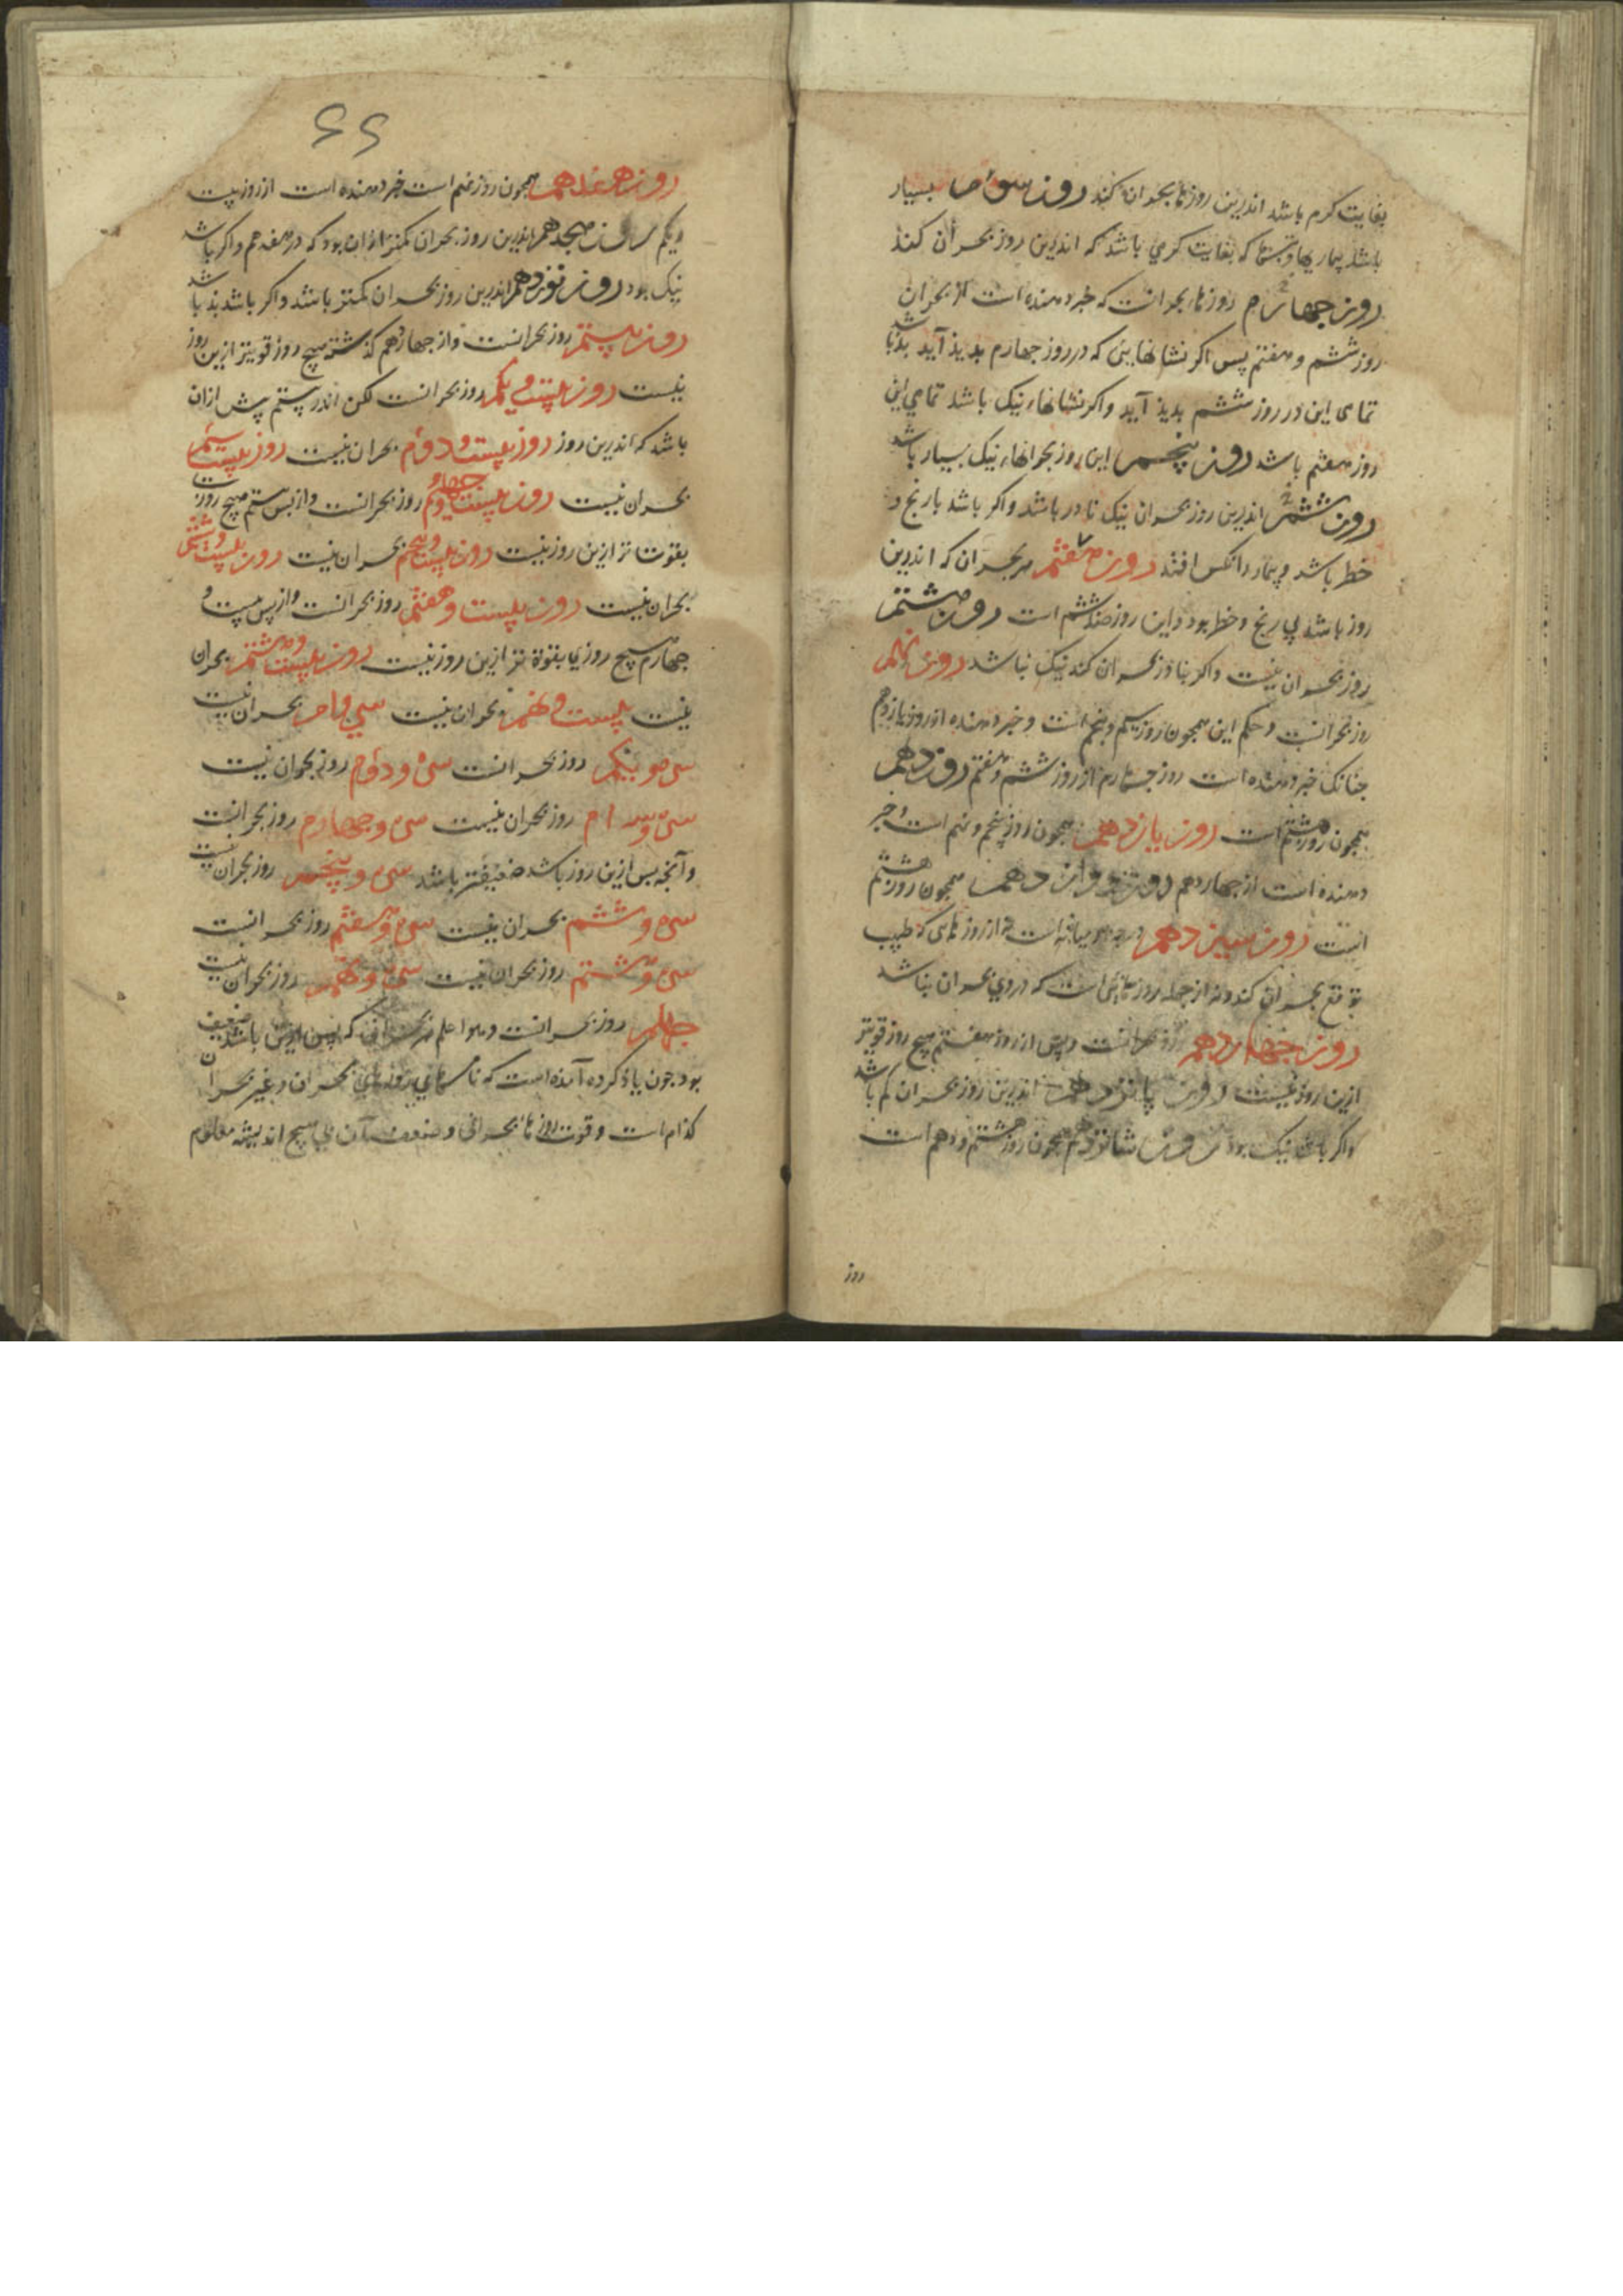 بغایت کرم باشد اندرین روزها بحران کند روز سوم بسیار
باشد بیماریها که بغایت کرمی باشد که اندرین روز بحران کند
روز جهارم روزهاء بحرانست که خبر دهنده است از بحران
روز ششم و هفتم پس اکر نشانهایی که در روز جهارم بدیذ آید بد باشد
تمامی این در روز ششم بدیذ آید و اکر نشانهاء نیک باشد تمامی این
روز هفتم باشد روز پنجم این روز بحرانهاء نیک بسیار باشد
روز ششم اندرین روز بحران نیک نادر باشد و اکر باشد با رنج و
خطر باشد و بیمار را نکس افتد روز هفتم هر بحران که اندرین
روز باشد بی رنج و خطر بود و این روز ضد ششم است روز هشتم
روز بحران نیست و اکر بنادر بحران کند نیک نباشد روز نهم
روز بحرانست و حکم این همجون روز سیم و پنجم است و خبر دهنده از روز یازدهم
جنانک خبر دهنده است روز جهارم از روز ششم و هفتم روز دهم
همجون روز هشتم است روز یازدهم همجون روز پنجم و نهم است و خبر
دهنده است از جهاردهم روز دوازدهم همجون روز هشتم
است روز سیزدهم میانه است نه از روزهایی که طبیب
توقع بحران کند و نه از جمله روزهایی است که در وی بحران نباشد
روز جهاردهم روز بحرانست و پس از روز هفتم هیج روز قویتر
ازین روز نیست روز پانزدهم اندرین روز بحران کم باشد
و اکر باشد نیک بود روز شانزدهم همجون روز هشتم و دهم است
روز
۶۶
روز هفدهم همجون روز نهم است خبر دهنده است از روز بیست
و یکم روز هیجدهم اندرین روز بحران کمتر از ان بود که در هفدهم و اکر باشد
نیک بود روز نوزدهم اندرین روز بحران کمتر باشد و اکر باشد بد باشد
روز بیستم روز بحرانست و از جهاردهم کذشته هیج روز قویتر ازین روز
نیست روز بیست و یکم روز بحرانست لکن اندر بیستم پیش از ان
باشد که اندرین روز روز بیست و دوم بحران نیست روز بیست سیم
بحران نیست روز بیست و جهارم روز بحرانست و از بیستم هیج روز
بقوت تر ازین روز نیست روز بیست و پنجم بحران نیست روز بیست و ششم
بحران نیست روز بیست و هفتم روز بحرانست و از پس بیست و
جهارم هیج روزی بقوة تر ازین روز نیست روز بیست و هشتم بحران
نیست بیست و نهم بحران نیست سی ام بحران نیست
سی و یکم روز بحرانست سی و دوم روز بحران نیست
سی و سه ام روز بحران نیست سی و جهارم روز بحرانست
و آنجه پس ازین روز باشد ضعیفتر باشد سی و پنجم روز بحران نیست
سی و ششم بحران نیست سی و هفتم روز بحرانست
سی و هشتم روز بحران نیست سی و نهم روز بحران نیست
جهلم روز بحرانست و هو اعلم هر بحرانی که پس ازین باشد ضعیف
بود جون یاذ کرده آمده است که نامهای روزهای بحران و غیر بحران
کدام است و قوت روزهاء بحرانی و ضعف آن بی هیج اندیشه معلوم